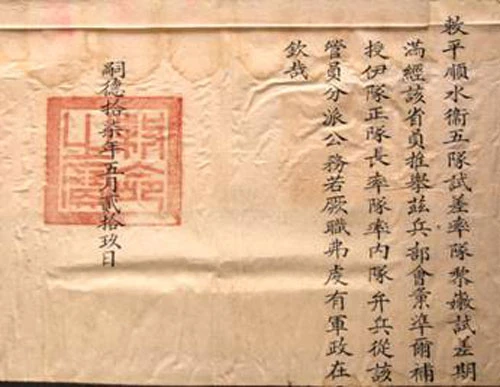 敕平順水衛五隊試差率隊黎嫩試差期
滿經該省員推舉茲兵部會業準爾補
授伊隊正隊長率隊率內隊弁兵從該
管員分派公務若厥職弗虔有軍政在
欽哉
嗣德拾柒年五月貳拾玖日
敕命之寶